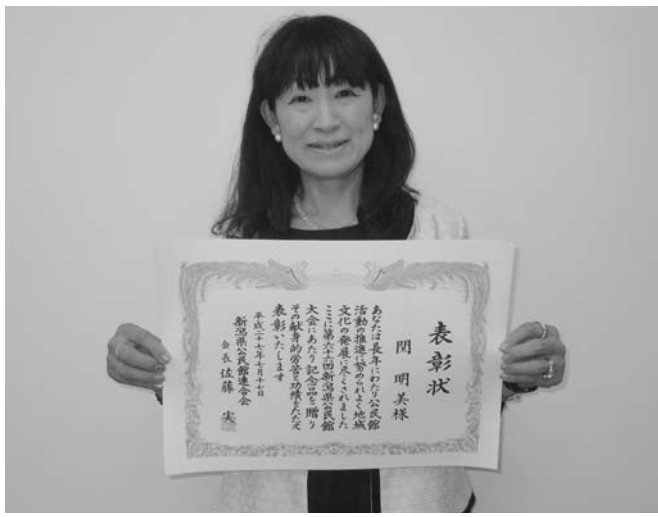 表彰状
関 明美様
あなたは長年にわたり公民館
活動の推進に努められよく地域
文化の発展に尽くされました
ここに第六十六回新潟県公民館
大会にあたり記念品を贈り
その献身的労苦と功績をたたえ
表彰いたします
平成二十七年七月十七日
新潟県公民館連合会
会長 佐藤 実